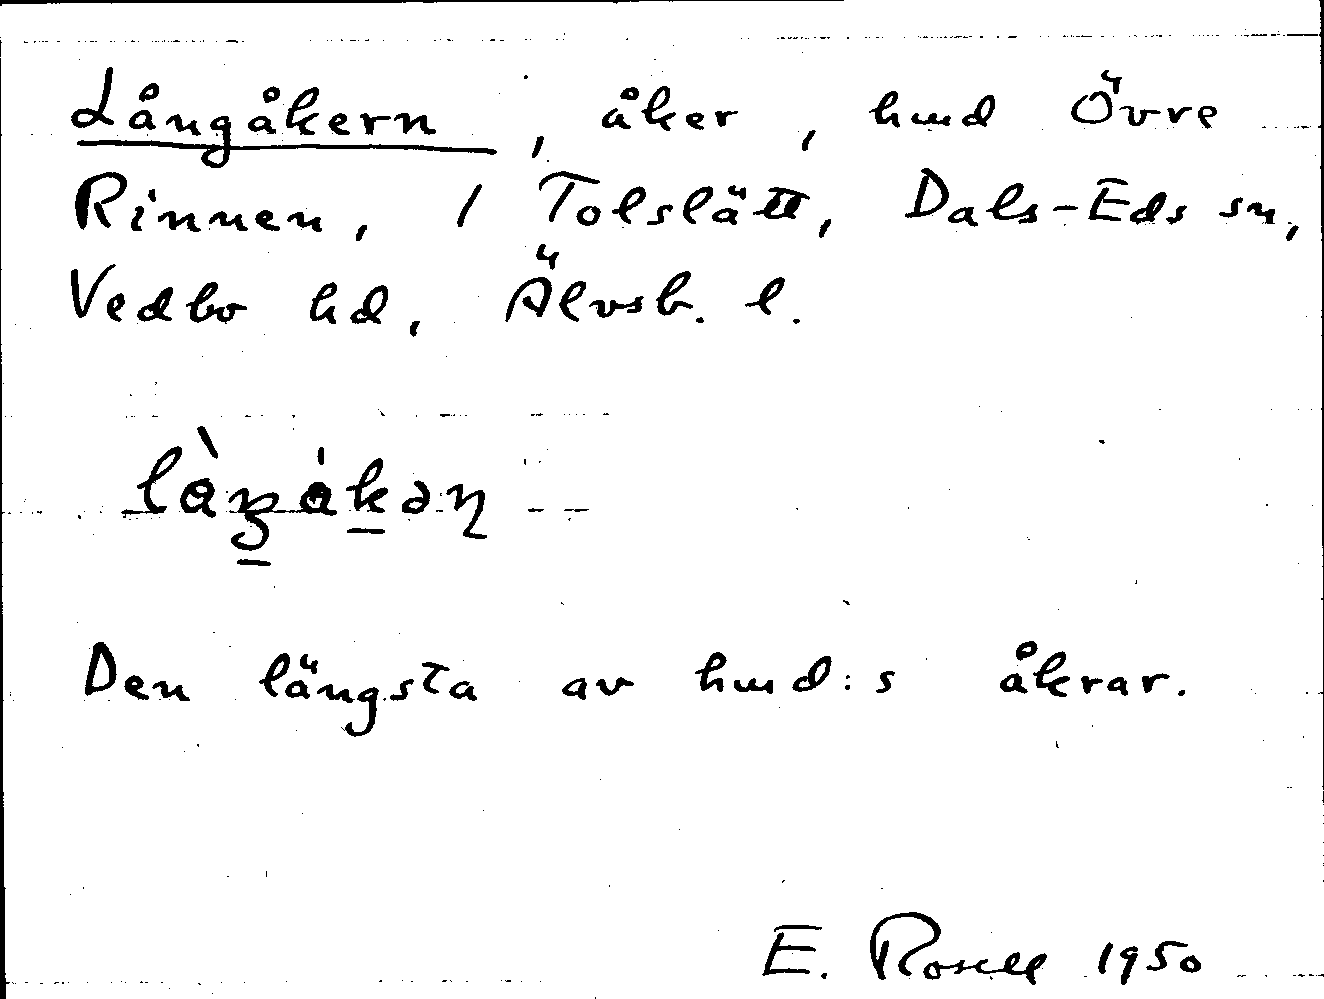 Långåkern, åker, hmd Övre
Rinnen, 1 Tolslätt, Dals-Eds sn,
Vedbo hd, Älvsb. l.
Den längsta av hmd:s åkrar.
E. Rosell 1950